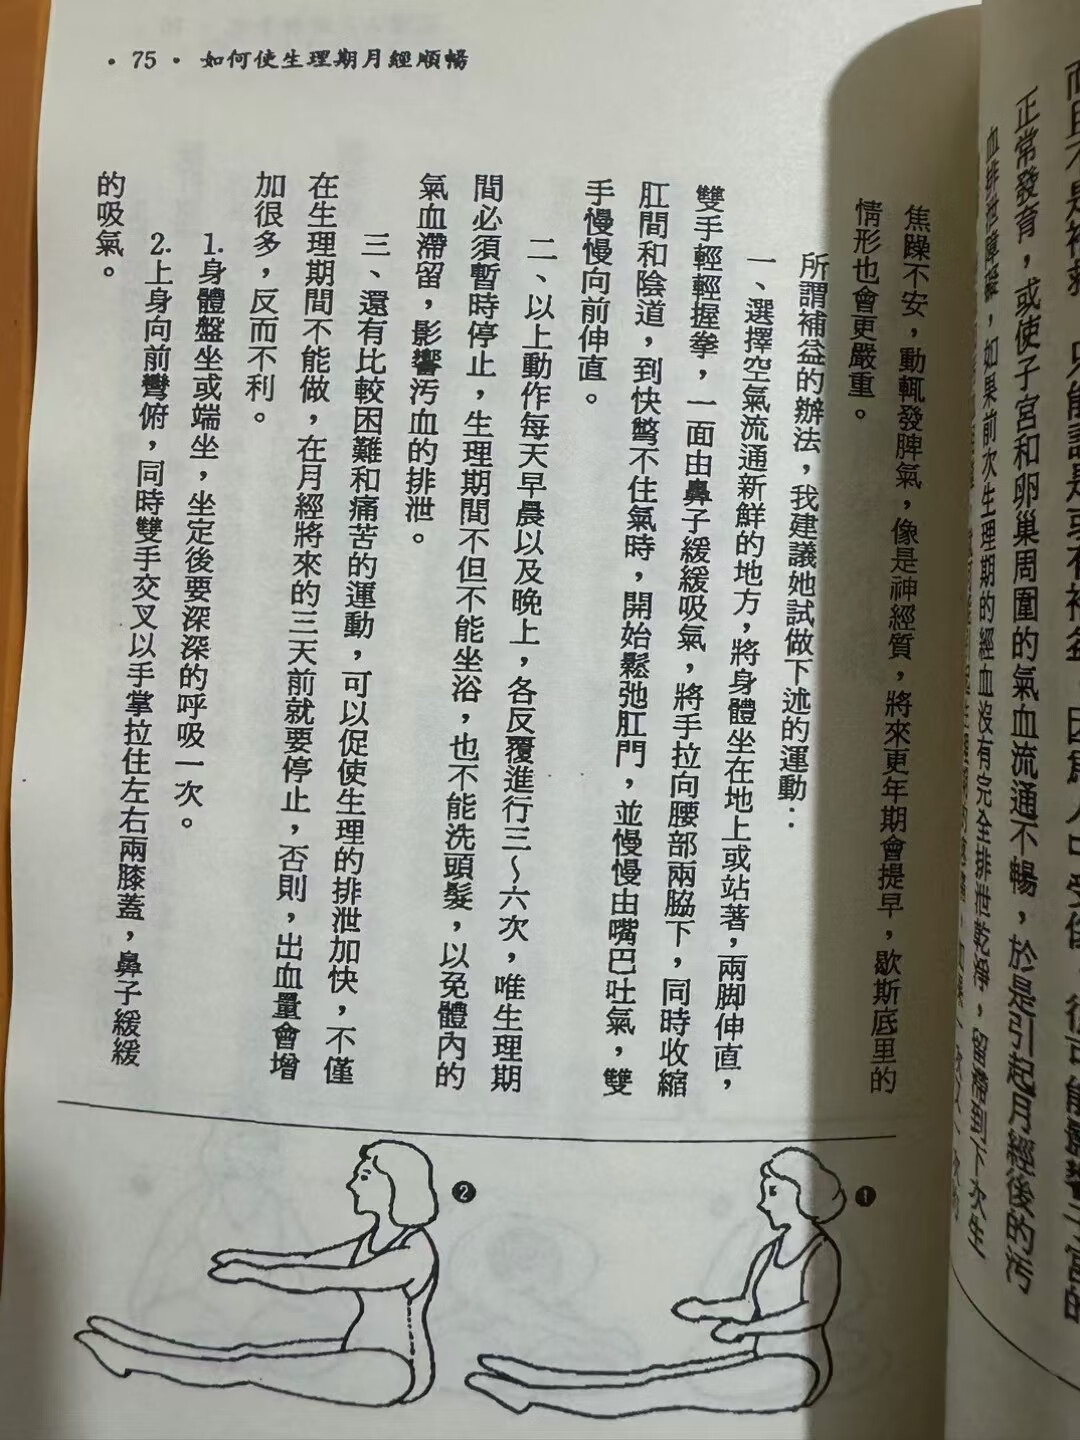 • 75 • 如何使生理期月經順暢
正常發育，或使子宮和卵巢周圍的氣血流通不暢，於是引起月經後的污
血排泄障礙，如果前次生理期的經血沒有完全排泄乾淨，留滯到下次生
焦躁不安，動輒發脾氣，像是神經質，將來更年期會提早，歇斯底里的
情形也會更嚴重。
所謂補益的辦法，我建議她試做下述的運動：
一、選擇空氣流通新鮮的地方，將身體坐在地上或站著，兩脚伸直，
雙手輕輕握拳，一面由鼻子緩緩吸氣，將手拉向腰部兩脇下，同時收縮
肛間和陰道，到快彆不住氣時，開始鬆弛肛門，並慢慢由嘴巴吐氣，雙
手慢慢向前伸直。
二、以上動作每天早晨以及晚上，各反覆進行三～六次，唯生理期
間必須暫時停止，生理期間不但不能坐浴，也不能洗頭髮，以免體內的
氣血滯留，影響污血的排泄。
三、還有比較困難和痛苦的運動，可以促使生理的排泄加快，不僅
在生理期間不能做，在月經將來的三天前就要停止，否則，出血量會增
加很多，反而不利。
1.身體盤坐或端坐，坐定後要深深的呼吸一次。
2.上身向前彎俯，同時雙手交叉以手掌拉住左右兩膝蓋，鼻子緩緩
的吸氣。
❶
❷